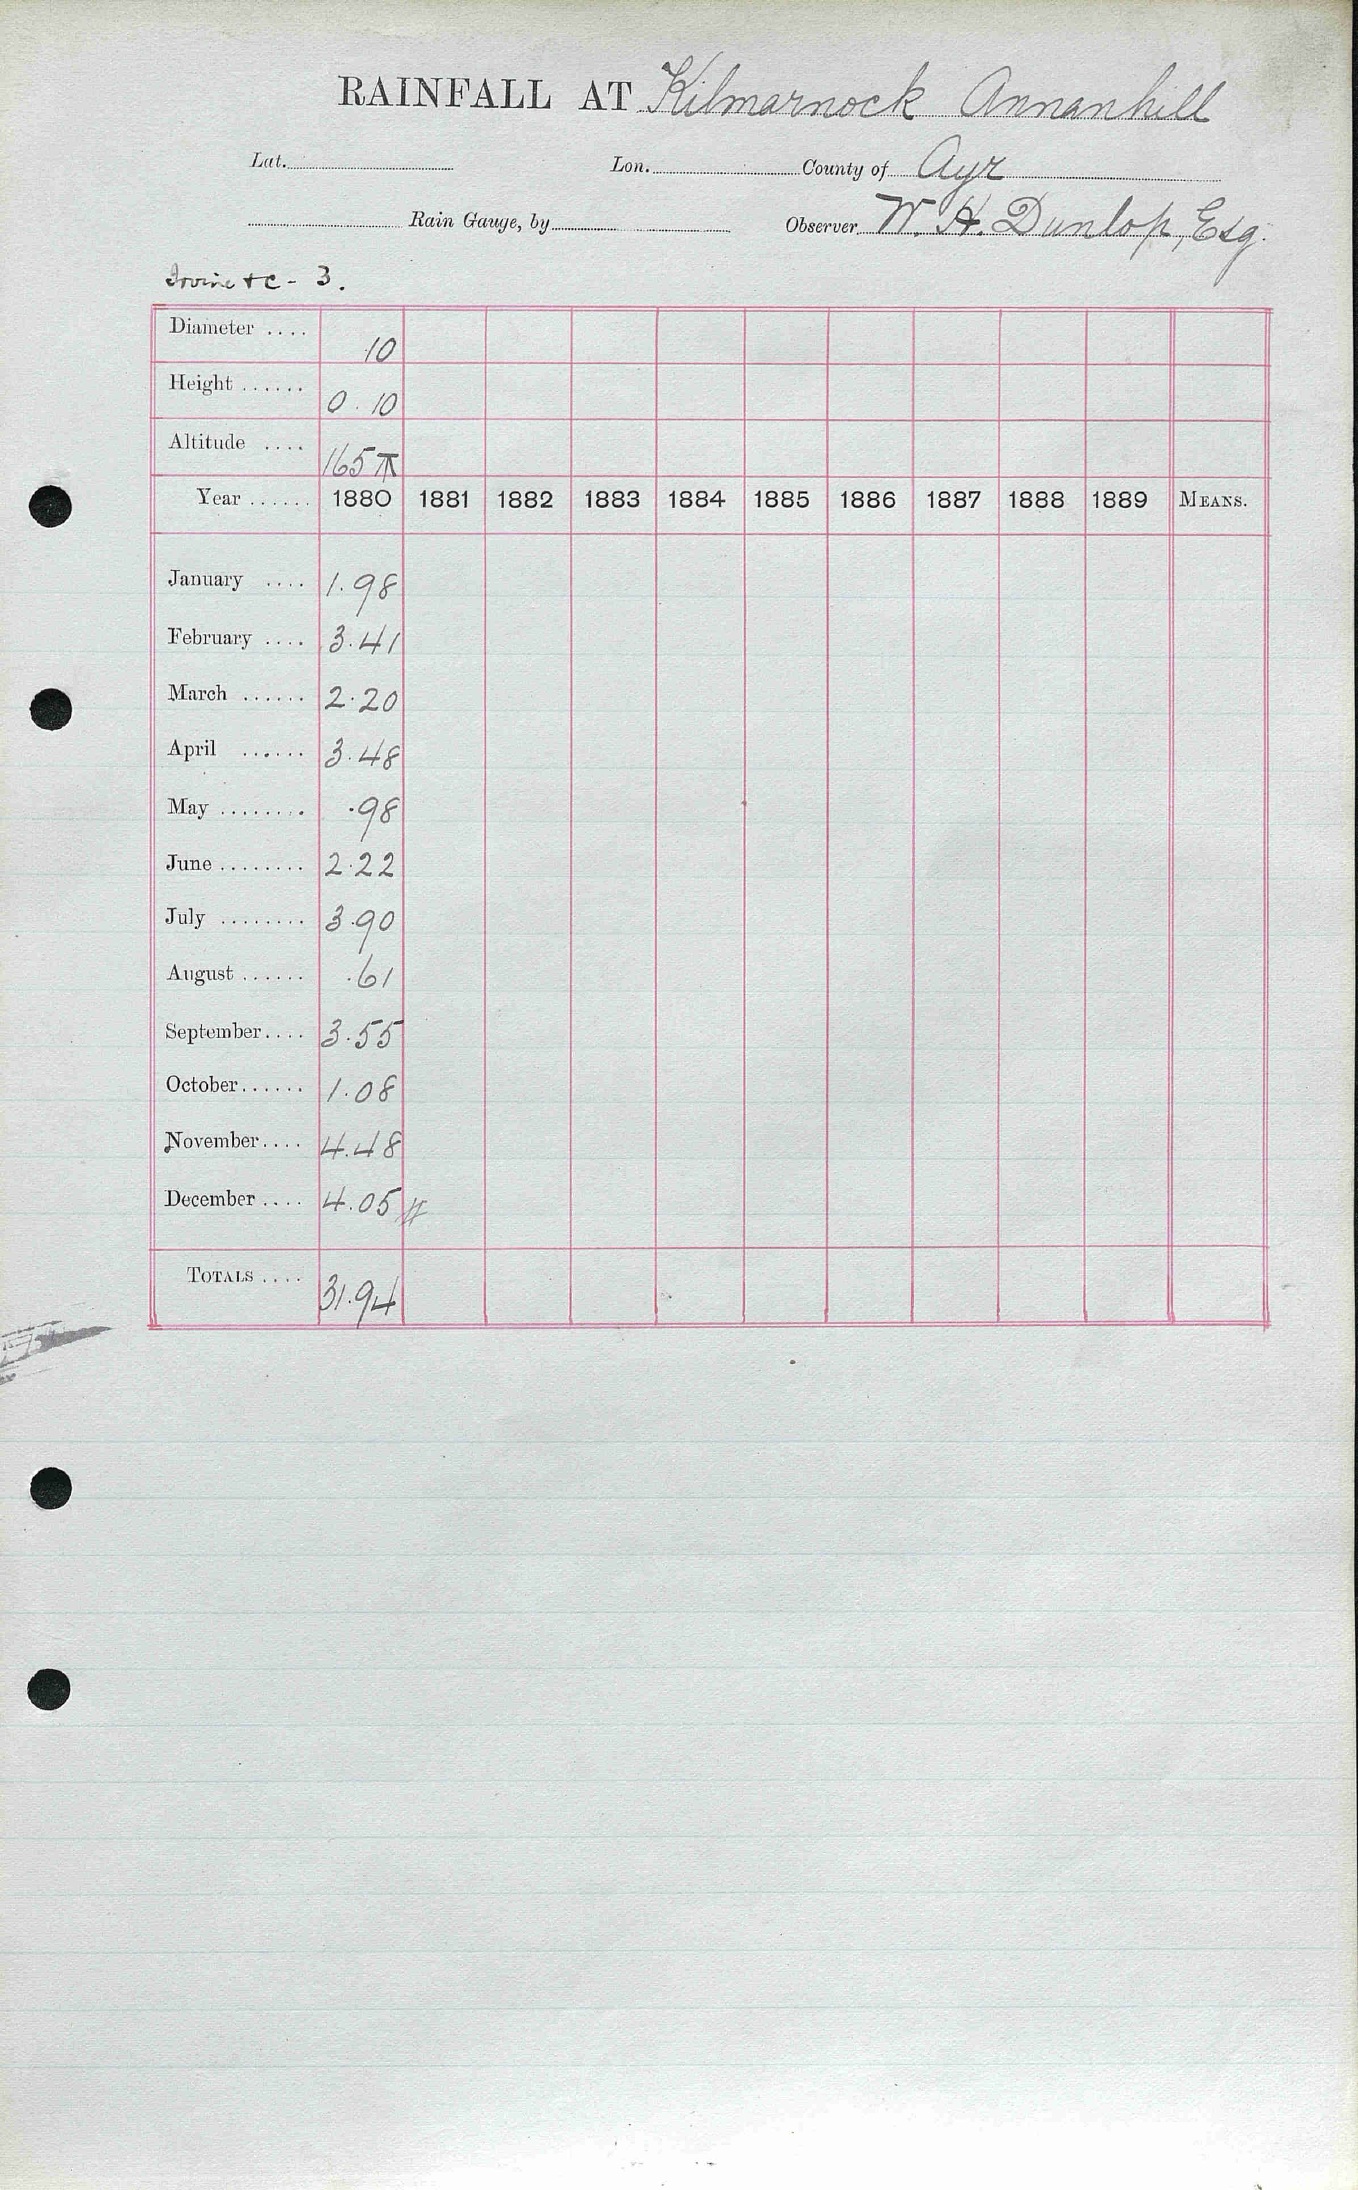 RAINFALL AT Kilmarnock Annanhill
Lat. Lon. County of Ayr
Rain Gauge, by Observer W. H. Dunlop, Esq.
Irvine &c - 3.
Diameter .... 10
Height ...... 0.10
Altitude .... 165 T
Year ...... 1880 1881 1882 1883 1884 1885 1886 1887 1888 1889 MEANS.
January .... 1.98
February .... 3.41
March ...... 2.20
April ...... 3.48
May ........ .98
June ........ 2.22
July ........ 3.90
August ...... .61
September .... 3.55
October ...... 1.08
November .... 4.48
December .... 4.05 #
TOTALS .... 31.94